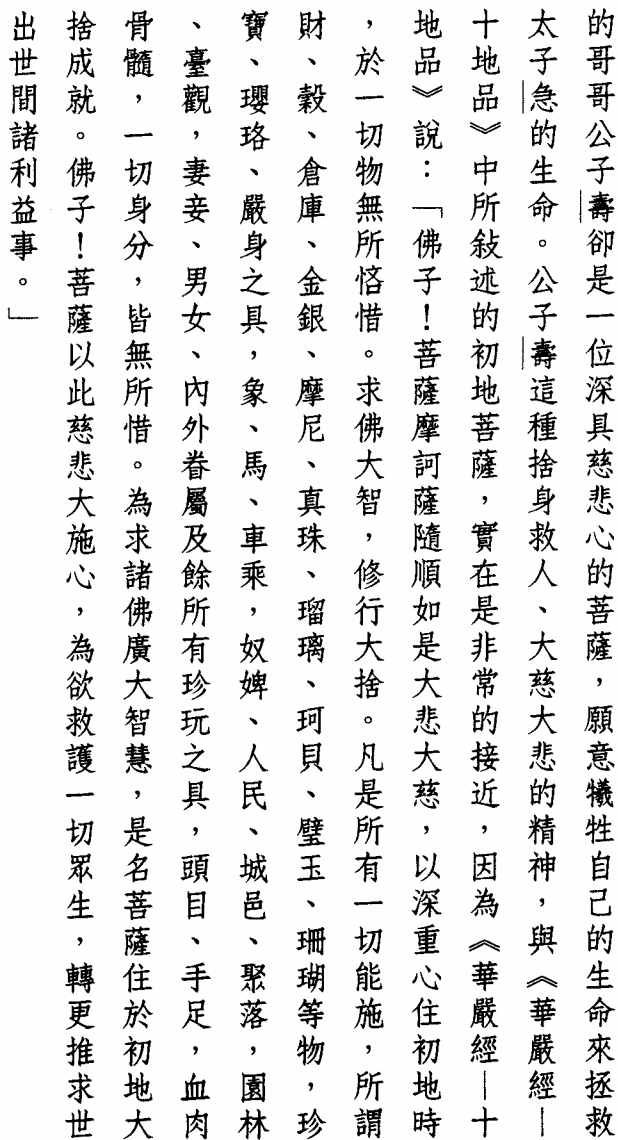 的哥哥公子壽卻是一位深具慈悲心的菩薩，願意犧牲自己的生命來拯救
太子急的生命。公子壽這種捨身救人、大慈大悲的精神，與《華嚴經—
十地品》中所敍述的初地菩薩，實在是非常的接近，因為《華嚴經—十
地品》說：「佛子！菩薩摩訶薩隨順如是大悲大慈，以深重心住初地時
，於一切物無所悋惜。求佛大智，修行大捨。凡是所有一切能施，所謂
財、穀、倉庫、金銀、摩尼、真珠、瑠璃、珂貝、璧玉、珊瑚等物，珍
寶、瓔珞、嚴身之具，象、馬、車乘，奴婢、人民、城邑、聚落，園林
、臺觀，妻妾、男女、內外眷屬及餘所有珍玩之具，頭目、手足，血肉
骨髓，一切身分，皆無所惜。為求諸佛廣大智慧，是名菩薩住於初地大
捨成就。佛子！菩薩以此慈悲大施心，為欲救護一切眾生，轉更推求世
出世間諸利益事。」